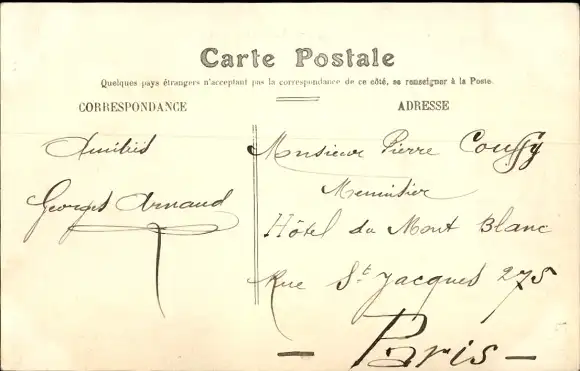 Carte Postale
Quelques pays étrangers n'acceptant pas la correspondance de ce côté, se renseigner à la Poste.
CORRESPONDANCE
Amitiés
Georges Arnaud
ADRESSE
Monsieur Pierre Couffy
Menuisier
Hôtel du Mont Blanc
Rue St Jacques 275
— Paris —